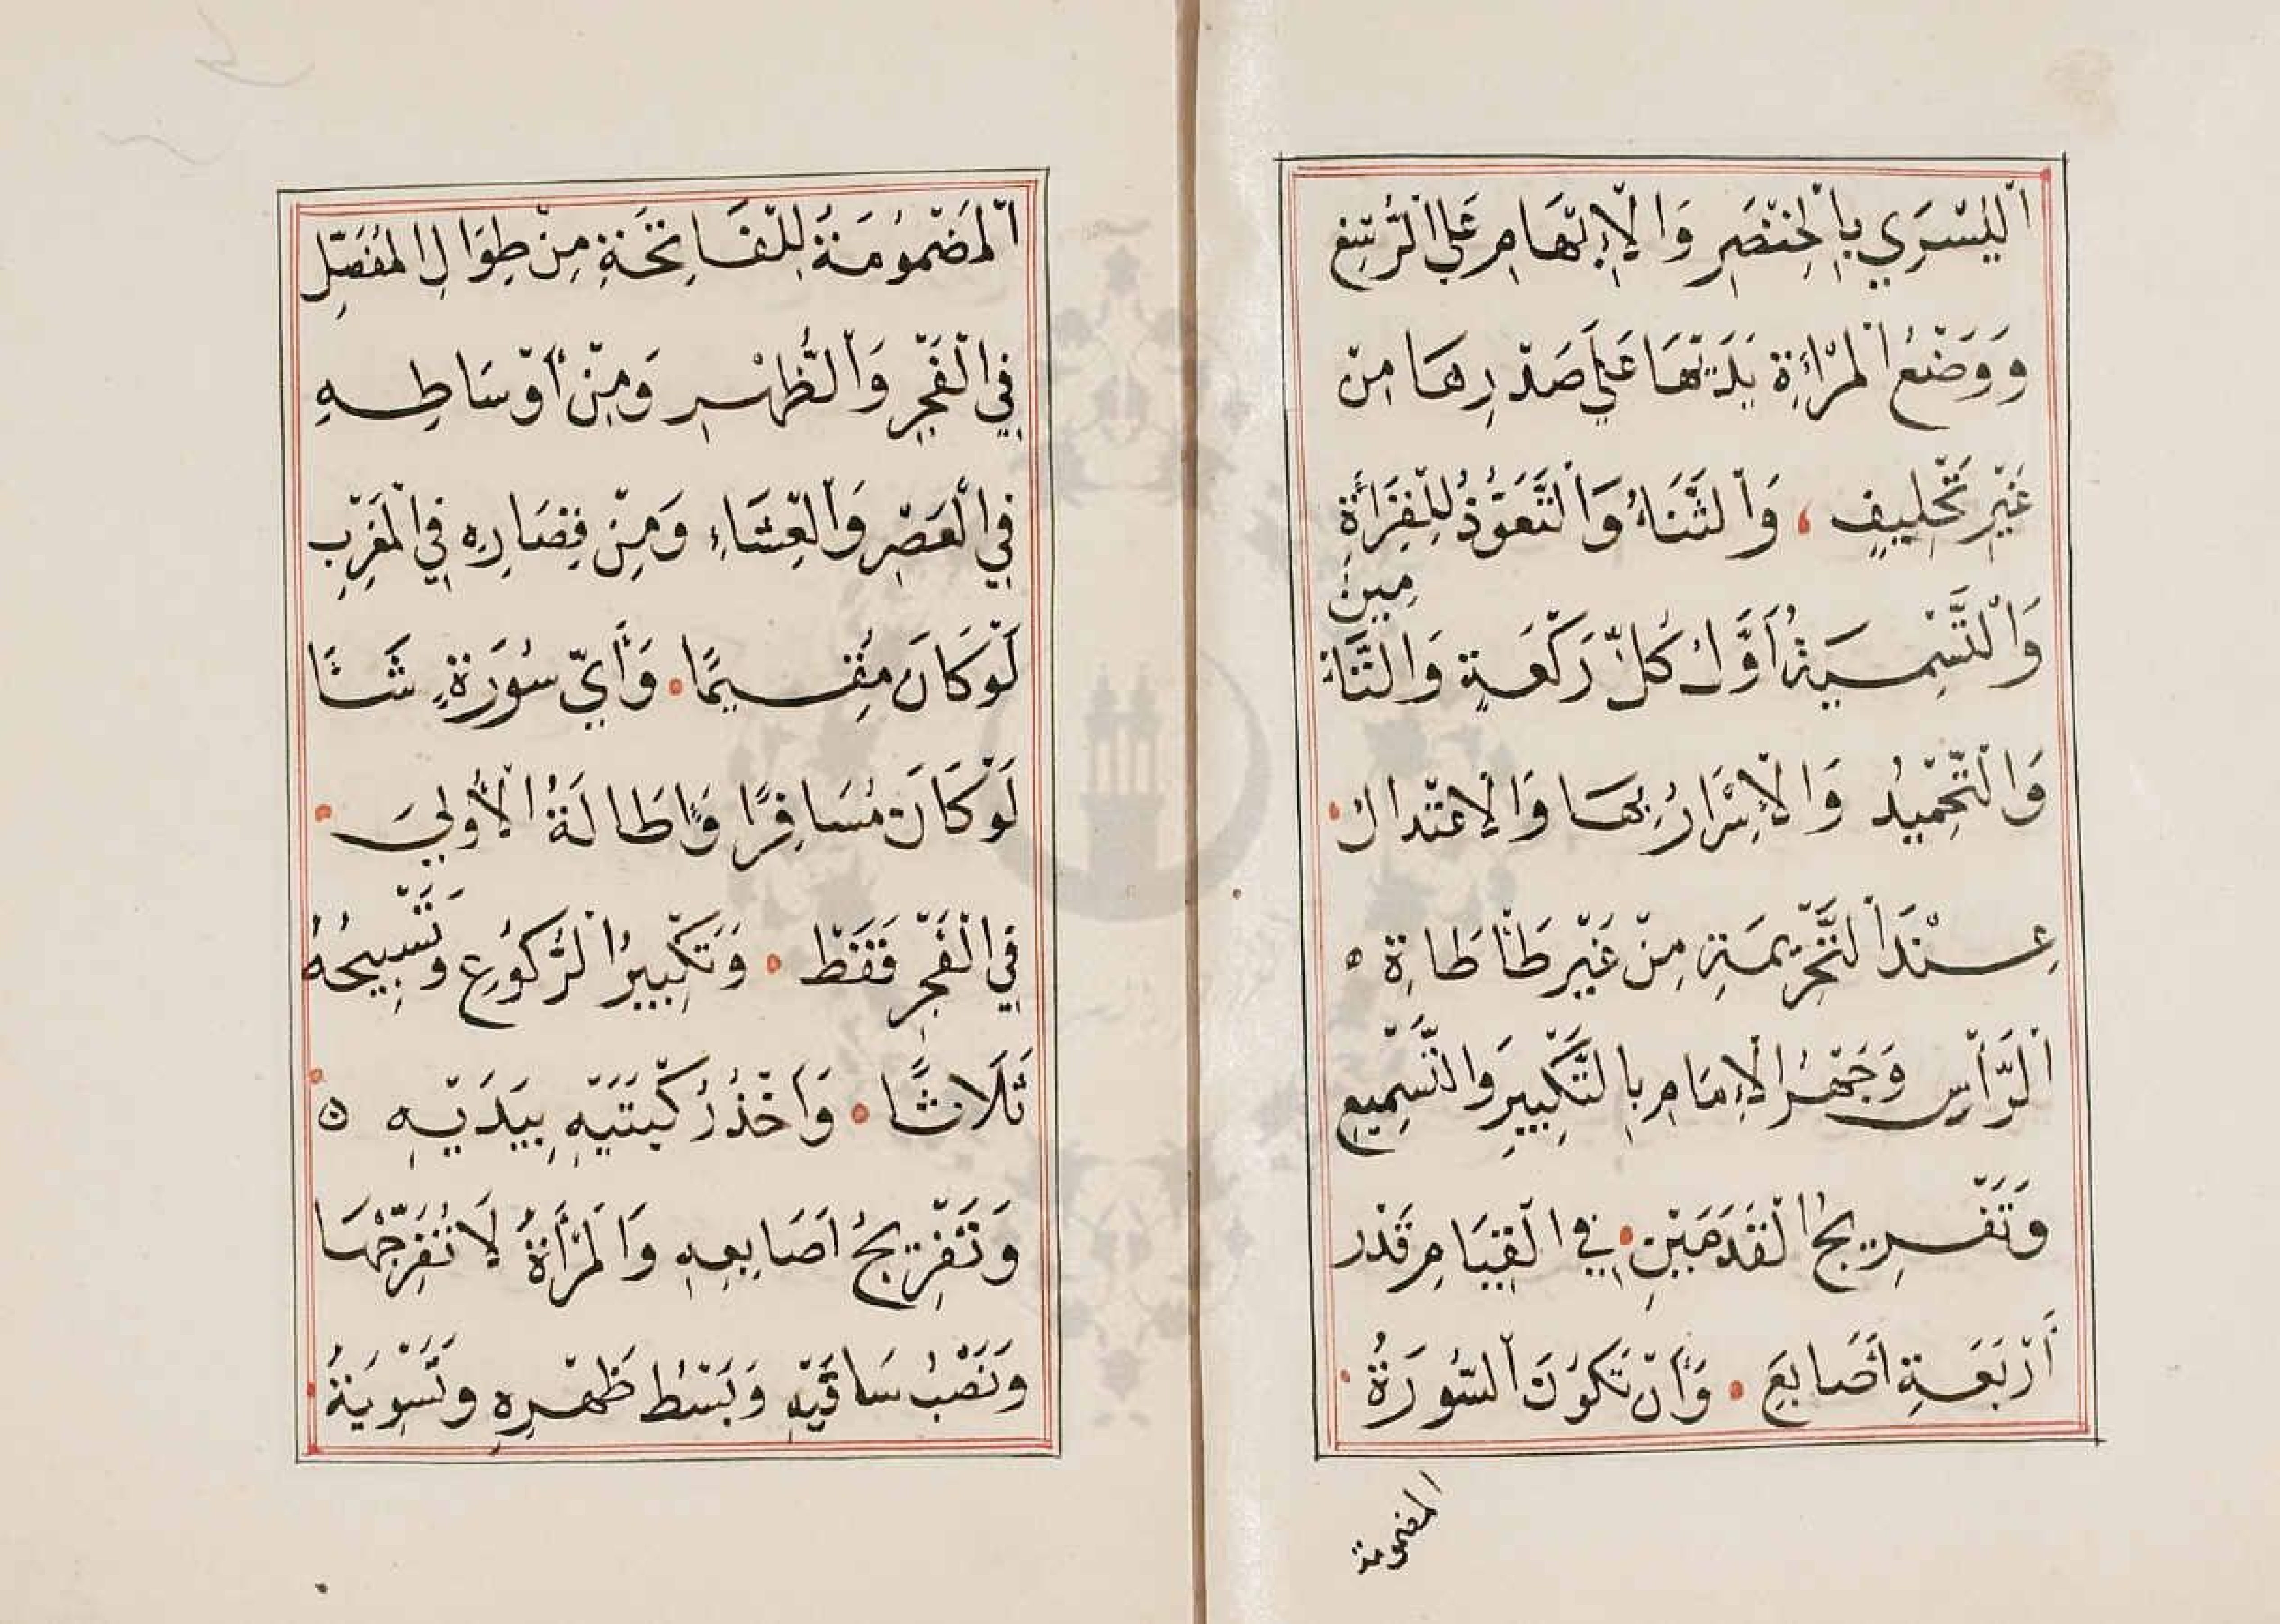 اَلْيُسْرَي بِالْخِنْصَرِ وَالْاِبْهَامِ عَلَي الرُّسْغِ
وَوَضْعُ الْمَرْاَةِ يَدَيْهَا عَلَي صَدْرِهَا مِنْ
غَيْرِ تَحْلِيفٍ ، وَالثَّنَاءُ وَالتَّعَوُّذُ لِلْقِرَأَةِ
وَالتَّسْمِيَةُ اَوَّلَ كُلِّ رَكْعَةٍ وَالتَّأمِينُ
وَالتَّحْمِيْدُ وَالْاِسْرَارُ بِهَا وَالْاِعْتِدَالُ
عِنْدَ التَّحْرِيْمَةِ مِنْ غَيْرِ طَأْطَاةِ ه
اَلرَّأْسِ وَجَهْرُ الْاِمَامِ بِالتَّكْبِيْرِ وَالتَّسْمِيعِ
وَتَفْرِيجُ الْقَدَمَيْنِ فِي الْقِيَامِ قَدْر
أَرْبَعَةِ أَصَابِعَ ٠ وَأَنْ تَكُوْنَ السُّورَةُ
المضمومة
اَلْمَضْمُوْمَةُ لِلْفَاتِحَةِ مِنْ طِوَالِ الْمُفَصَّلِ
فِي الْفَجْرِ وَالظُّهْرِ وَمِنْ أَوْسَاطِهِ
فِي الْعَصْرِ وَالْعِشَاءِ وَمِنْ قِصَارِهِ فِي الْمَغْرِبِ
لَوْ كَانَ مُقِيمًا ٠ وَأَيّ سُوْرَةٍ شَاءَ
لَوْ كَانَ مُسَافِرًا وَإِطَالَةُ الْأُوْلَي
فِي الْفَجْرِ فَقَطْ ٠ وَتَكْبِيْرُ الرُّكُوْعِ وَتَسْبِيحُهُ
ثَلَاثًا ٠ وَاَخْذُ رُكْبَتَيْهِ بِيَدَيْهِ ه
وَتَفْرِيجُ اَصَابِعِهِ وَالْمَرْأَةُ لَا تُفَرِّجُهَا
وَنَصْبُ سَاقَيْهِ وَبَسْطُ ظَهْرِهِ وَتَسْوِيَةُ